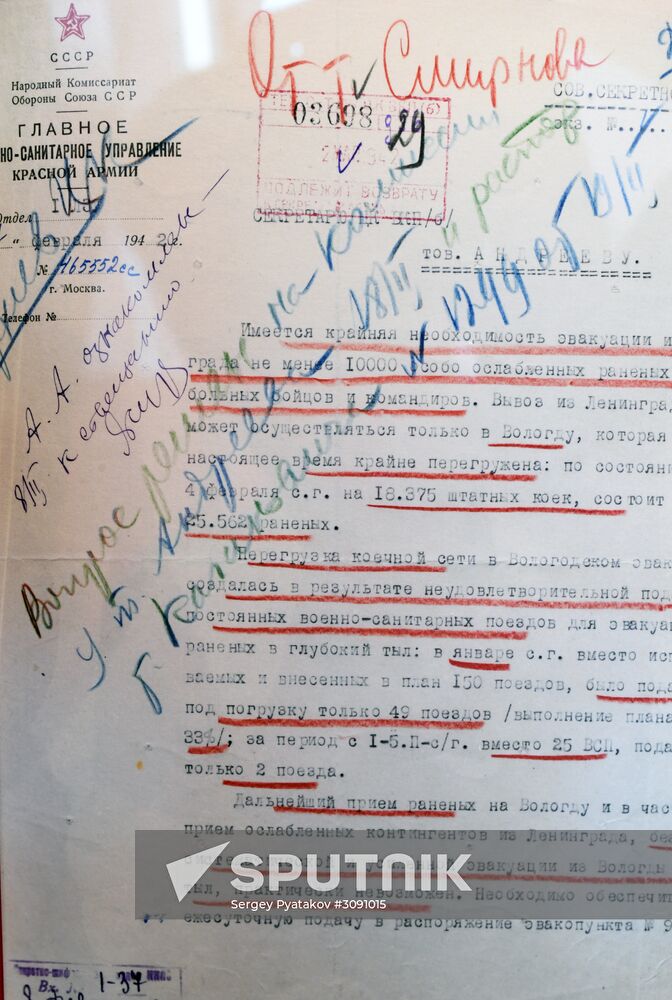 СССР
Народный Комиссариат
Обороны Союза ССР
ГЛАВНОЕ
НО-САНИТАРНОЕ УПРАВЛЕНИЕ
КРАСНОЙ АРМИИ
Отдел
февраля 1942 г.
№ 465552сс
г. Москва.
Телефон №
От т. Смирнова
СОВ.СЕКРЕТНО
экз. №
03608
29
ПОДЛЕЖИТ ВОЗВРАТУ
СЕКРЕТАРЮ ЦК ВКП/б/
тов. АНДРЕЕВУ.
А. А. ознакомлен
8/II к совещанию
Вопрос решен на совещании
у т. Андреева 18/II
Имеется крайняя необходимость эвакуации и
града не менее 10000 особо ослабленных раненых
больных бойцов и командиров. Вывоз из Ленинград
может осуществляться только в Вологду, которая
настоящее время крайне перегружена: по состояни
4 февраля с.г. на 18.375 штатных коек, состоит
25.562 раненых.
Перегрузка коечной сети в Вологодском эвак
создалась в результате неудовлетворительной под
постоянных военно-санитарных поездов для эвакуа
раненых в глубокий тыл: в январе с.г. вместо исп
ваемых и внесенных в план 150 поездов, было пода
под погрузку только 49 поездов /выполнение плана
33%/; за период с I-5.П-с/г. вместо 25 ВСП, пода
только 2 поезда.
Дальнейший прием раненых на Вологду и в час
прием ослабленных контингентов из Ленинграда, без
эвакуации из Вологды
тыл, практически невозможен. Необходимо обеспечит
ежесуточную подачу в распоряжение эвакопункта № 9
SPUTNIK
Sergey Pyatakov #3091015
Вх. 1-37